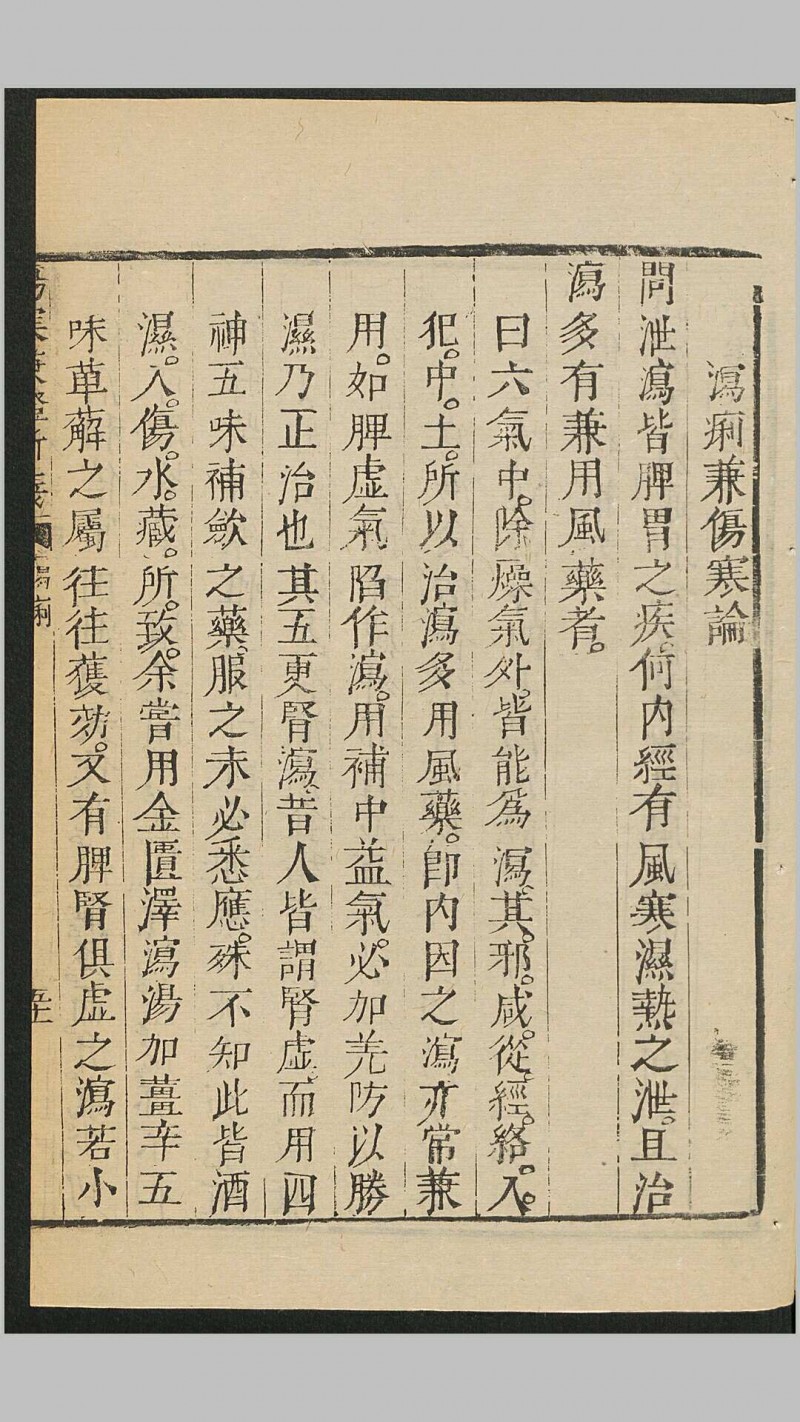 瀉痢兼傷寒論
問泄瀉皆脾胃之疾。何內經有風寒濕熱之泄。且治
瀉多有兼用風藥者。
曰六氣中。除燥氣外。皆能爲瀉。其。邪。咸。從。經。絡。入。
犯。中。土。所以治瀉多用風藥。卽內因之瀉亦常兼
用。如脾虛氣陷作瀉。用補中益氣。必加羌防以勝
濕乃正治也其五更腎瀉。昔人皆謂腎虛。而用四
神五味補斂之藥。服之未必悉應。殊不知此皆酒
濕。入。傷。水。藏。所。致。余嘗用金匱澤瀉湯加薑辛五
味萆薢之屬往往獲効。又有脾腎俱虛之瀉若小